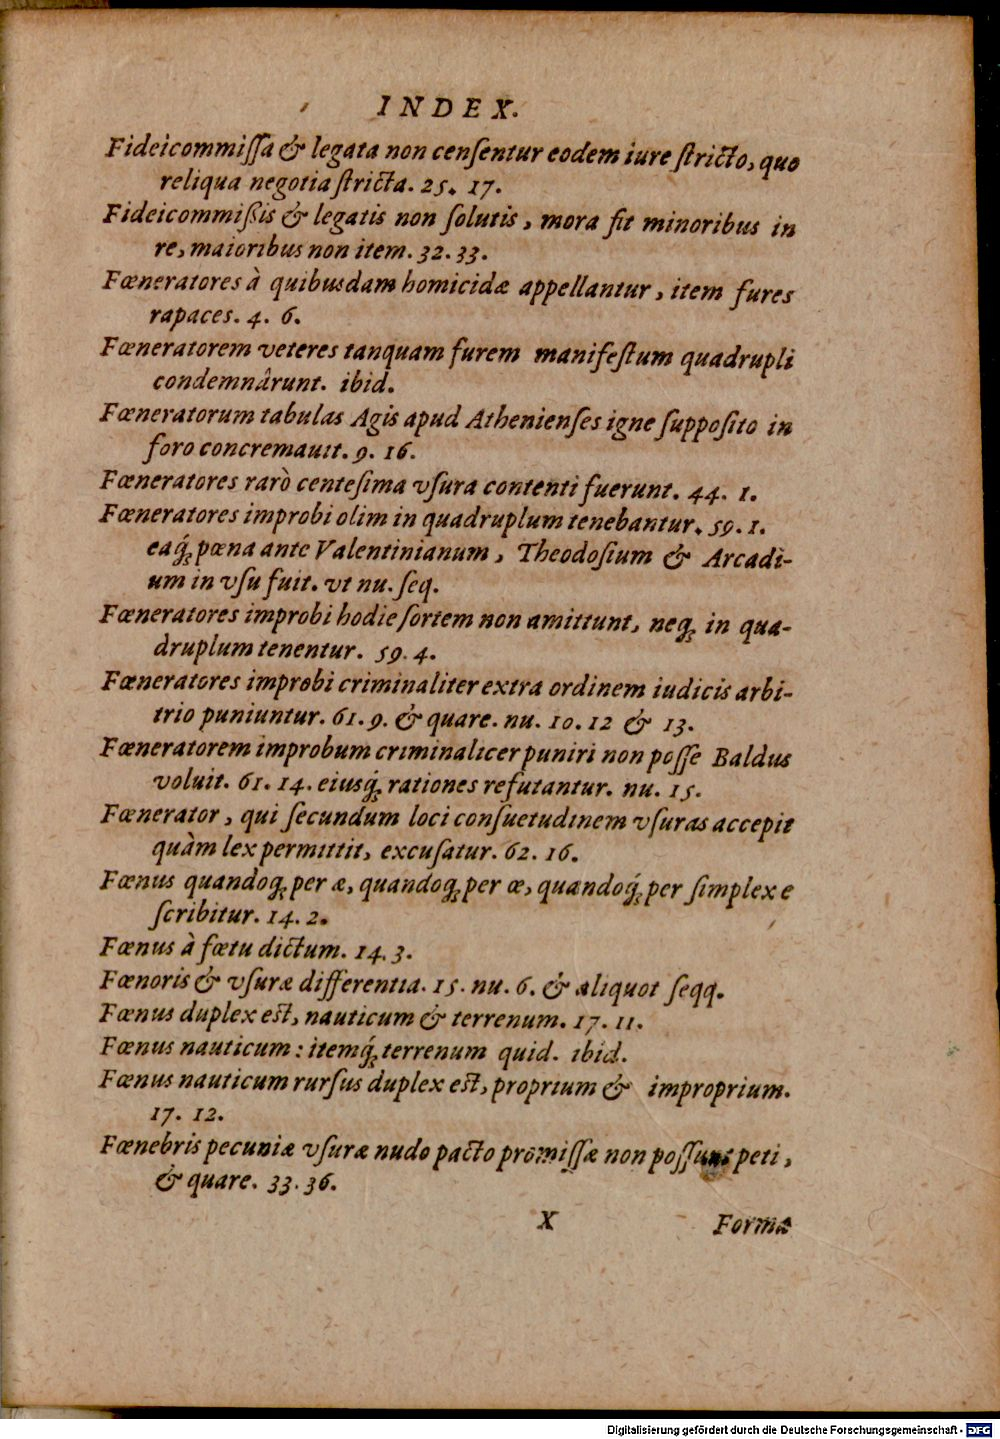 INDEX.
Fideicommiſſa & legata non cenſentur eodem iure ſtricto, quo
reliqua negotia ſtricta. 25. 17.
Fideicommißis & legatis non ſolutis, mora fit minoribus in
re, maioribus non item. 32. 33.
Fœneratores à quibusdam homicidæ appellantur, item fures
rapaces. 4. 6.
Fœneratorem veteres tanquam furem manifeſtum quadrupli
condemnârunt. ibid.
Fœneratorum tabulas Agis apud Athenienſes igne ſuppoſito in
foro concremauit. 9. 16.
Fœneratores rarò centeſima vſura contenti fuerunt. 44. 1.
Fœneratores improbi olim in quadruplum tenebantur. 59. 1.
eaq́ꝫ pœna ante Valentinianum, Theodoſium & Arcadi-
um in vſu fuit. vt nu. ſeq.
Fœneratores improbi hodie ſortem non amittunt, neqꝫ in qua-
druplum tenentur. 59. 4.
Fœneratores improbi criminaliter extra ordinem iudicis arbi-
trio puniuntur. 61. 9. & quare. nu. 10. 12 & 13.
Fœneratorem improbum criminalicer puniri non poſſe Baldus
voluit. 61. 14. eiusq́ꝫ rationes refutantur. nu. 15.
Fœnerator, qui ſecundum loci conſuetudinem vſuras accepit
quàm lex permittit, excuſatur. 62. 16.
Fœnus quandoqꝫ per æ, quandoqꝫ per œ, quandoq́ꝫ per ſimplex e
ſcribitur. 14. 2.
Fœnus à fœtu dictum. 14. 3.
Fœnoris & vſuræ differentia. 15. nu. 6. & aliquot ſeqq.
Fœnus duplex eſt, nauticum & terrenum. 17. 11.
Fœnus nauticum: itemq́ꝫ terrenum quid. ibid.
Fœnus nauticum rurſus duplex eſt, proprium & improprium.
17. 12.
Fœnebris pecuniæ vſuræ nudo pacto promiſſæ non poſſunt peti,
& quare. 33. 36.
X Forma
Digitalisierung gefördert durch die Deutsche Forschungsgemeinschaft - DFG